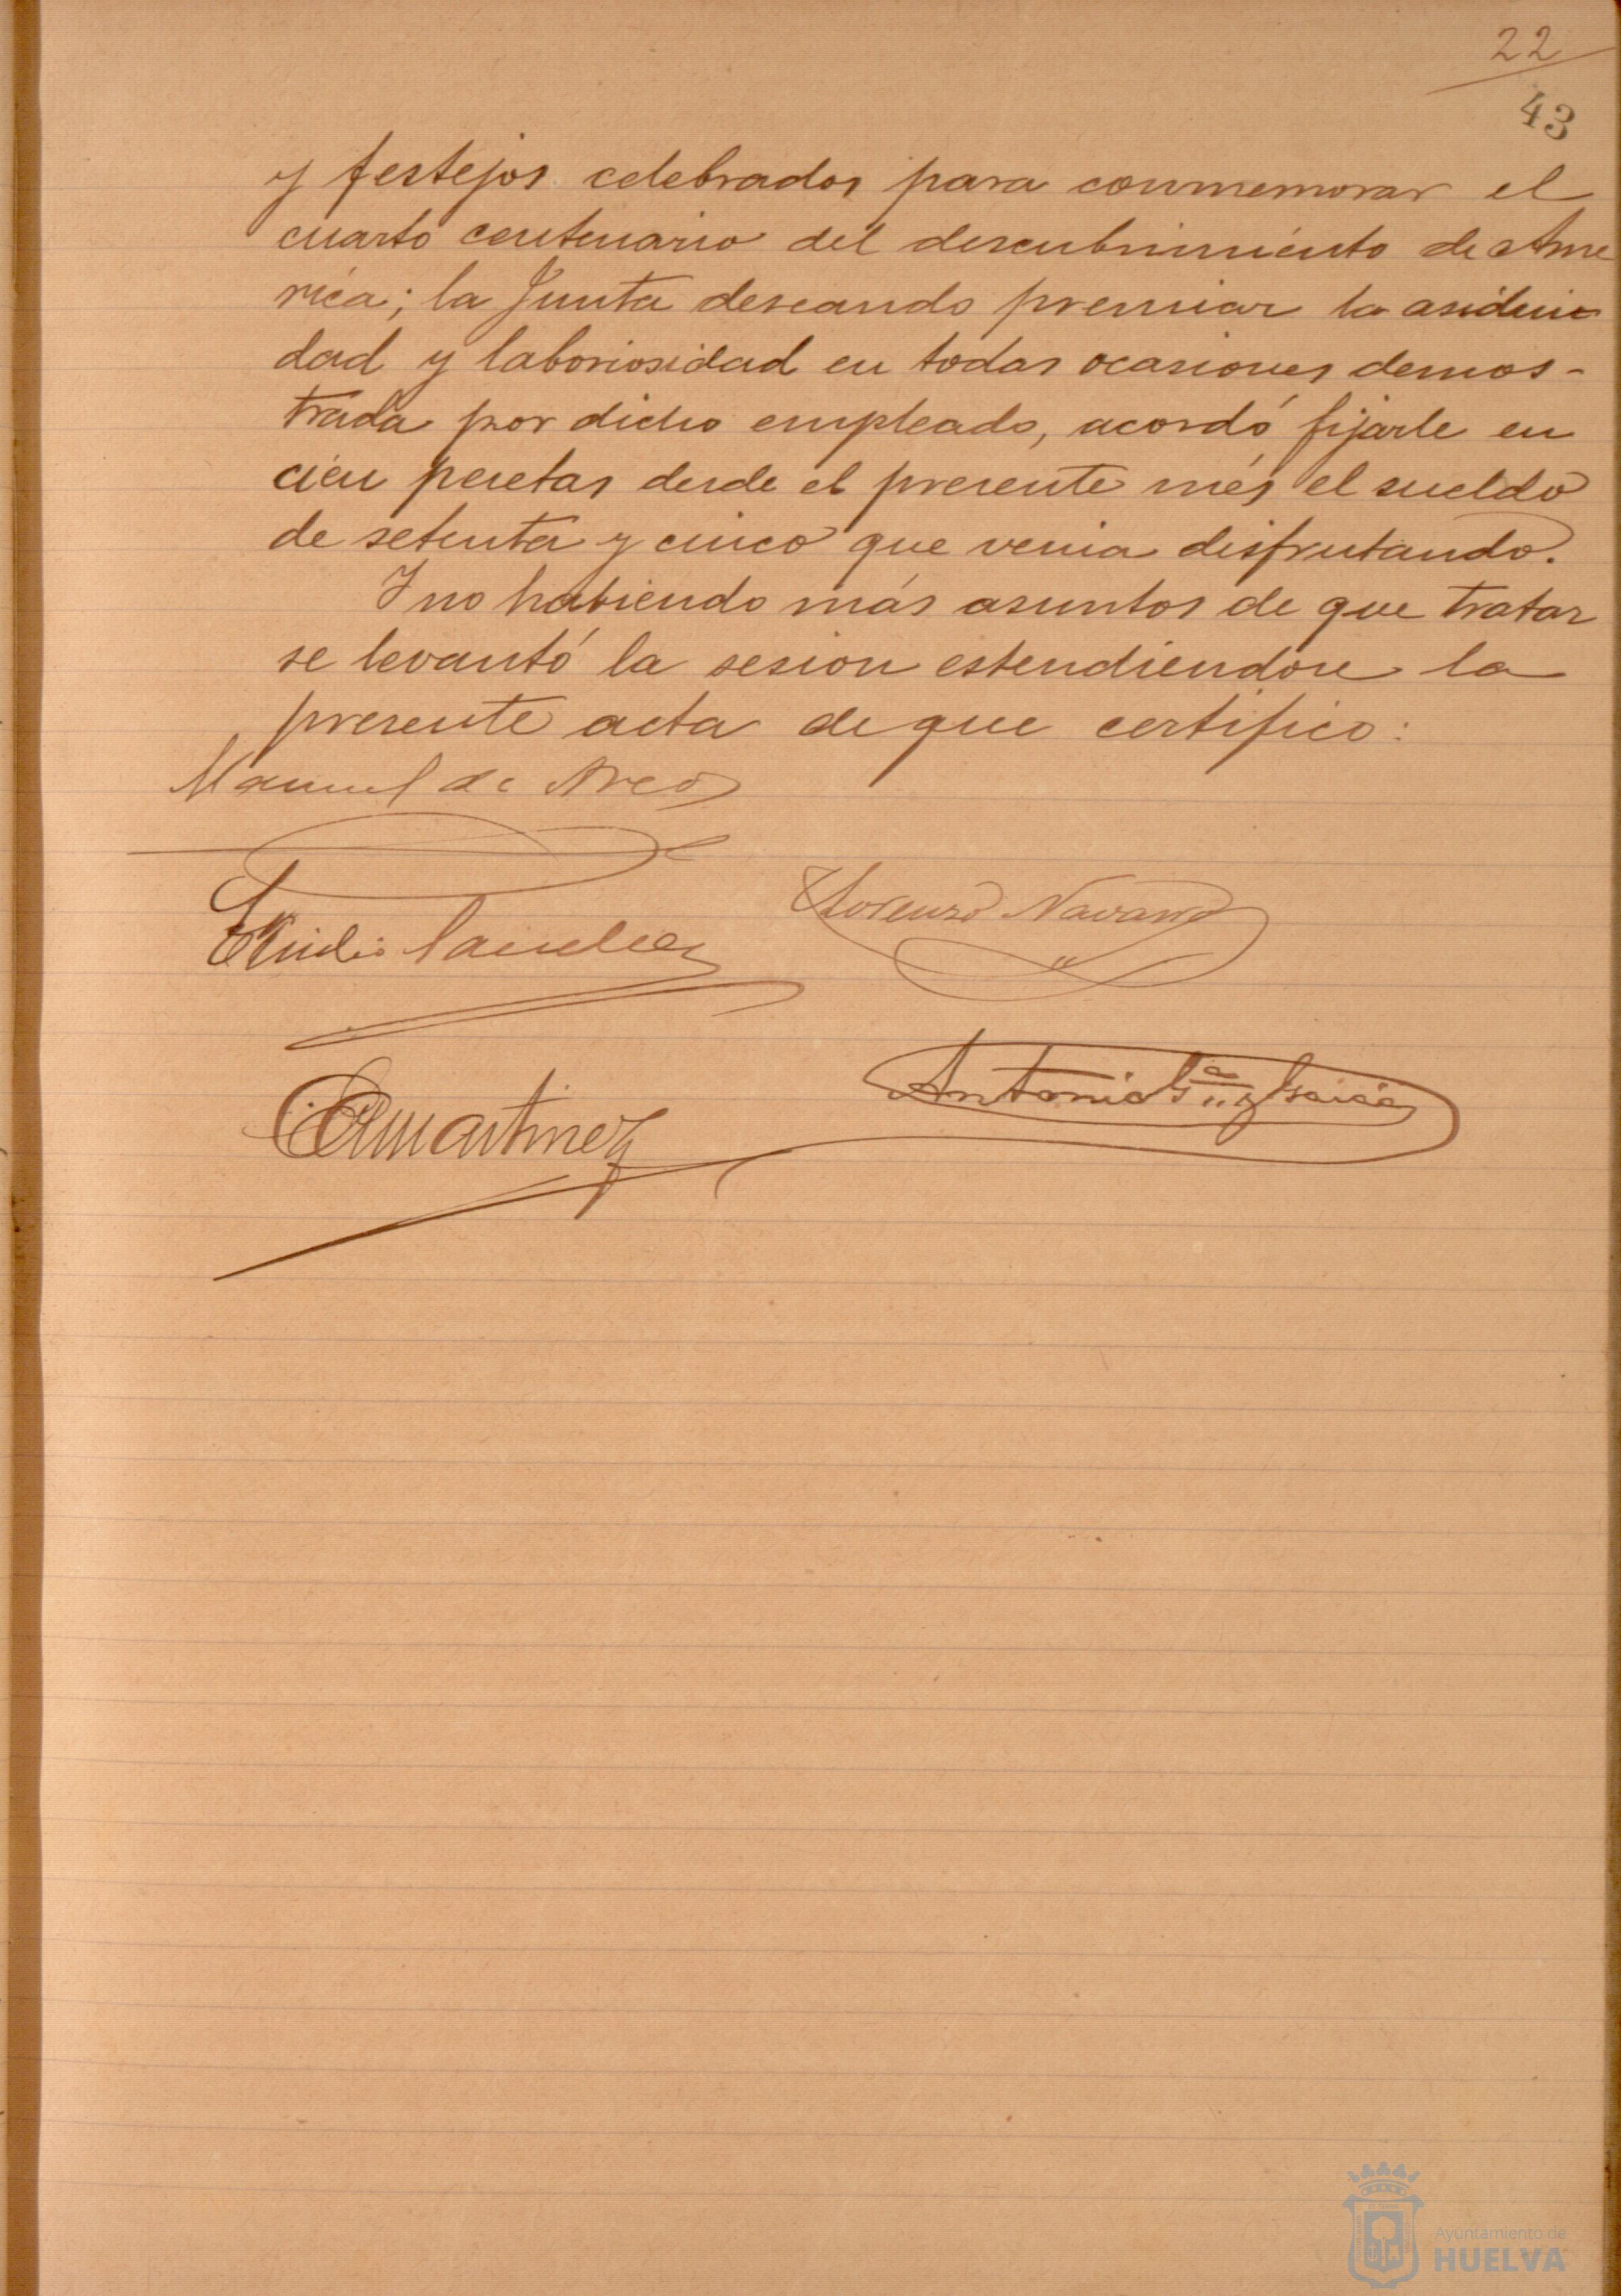 22
43
y festejos celebrados para conmemorar el
cuarto centenario del descubrimiento de Amé
rica; la Junta deseando premiar la asidui
dad y laboriosidad en todas ocasiones demos-
trada por dicho empleado, acordó fijarle en
cien pesetas desde el presente més el sueldo
de setenta y cinco que venia disfrutando.
Y no habiendo más asuntos de que tratar
se levantó la sesion estendiendose la
presente acta de que certifico:
Manuel de
Lorenzo Navarro
Emilio
Antonio Gª y García
Martinez
Ayuntamiento de
HUELVA